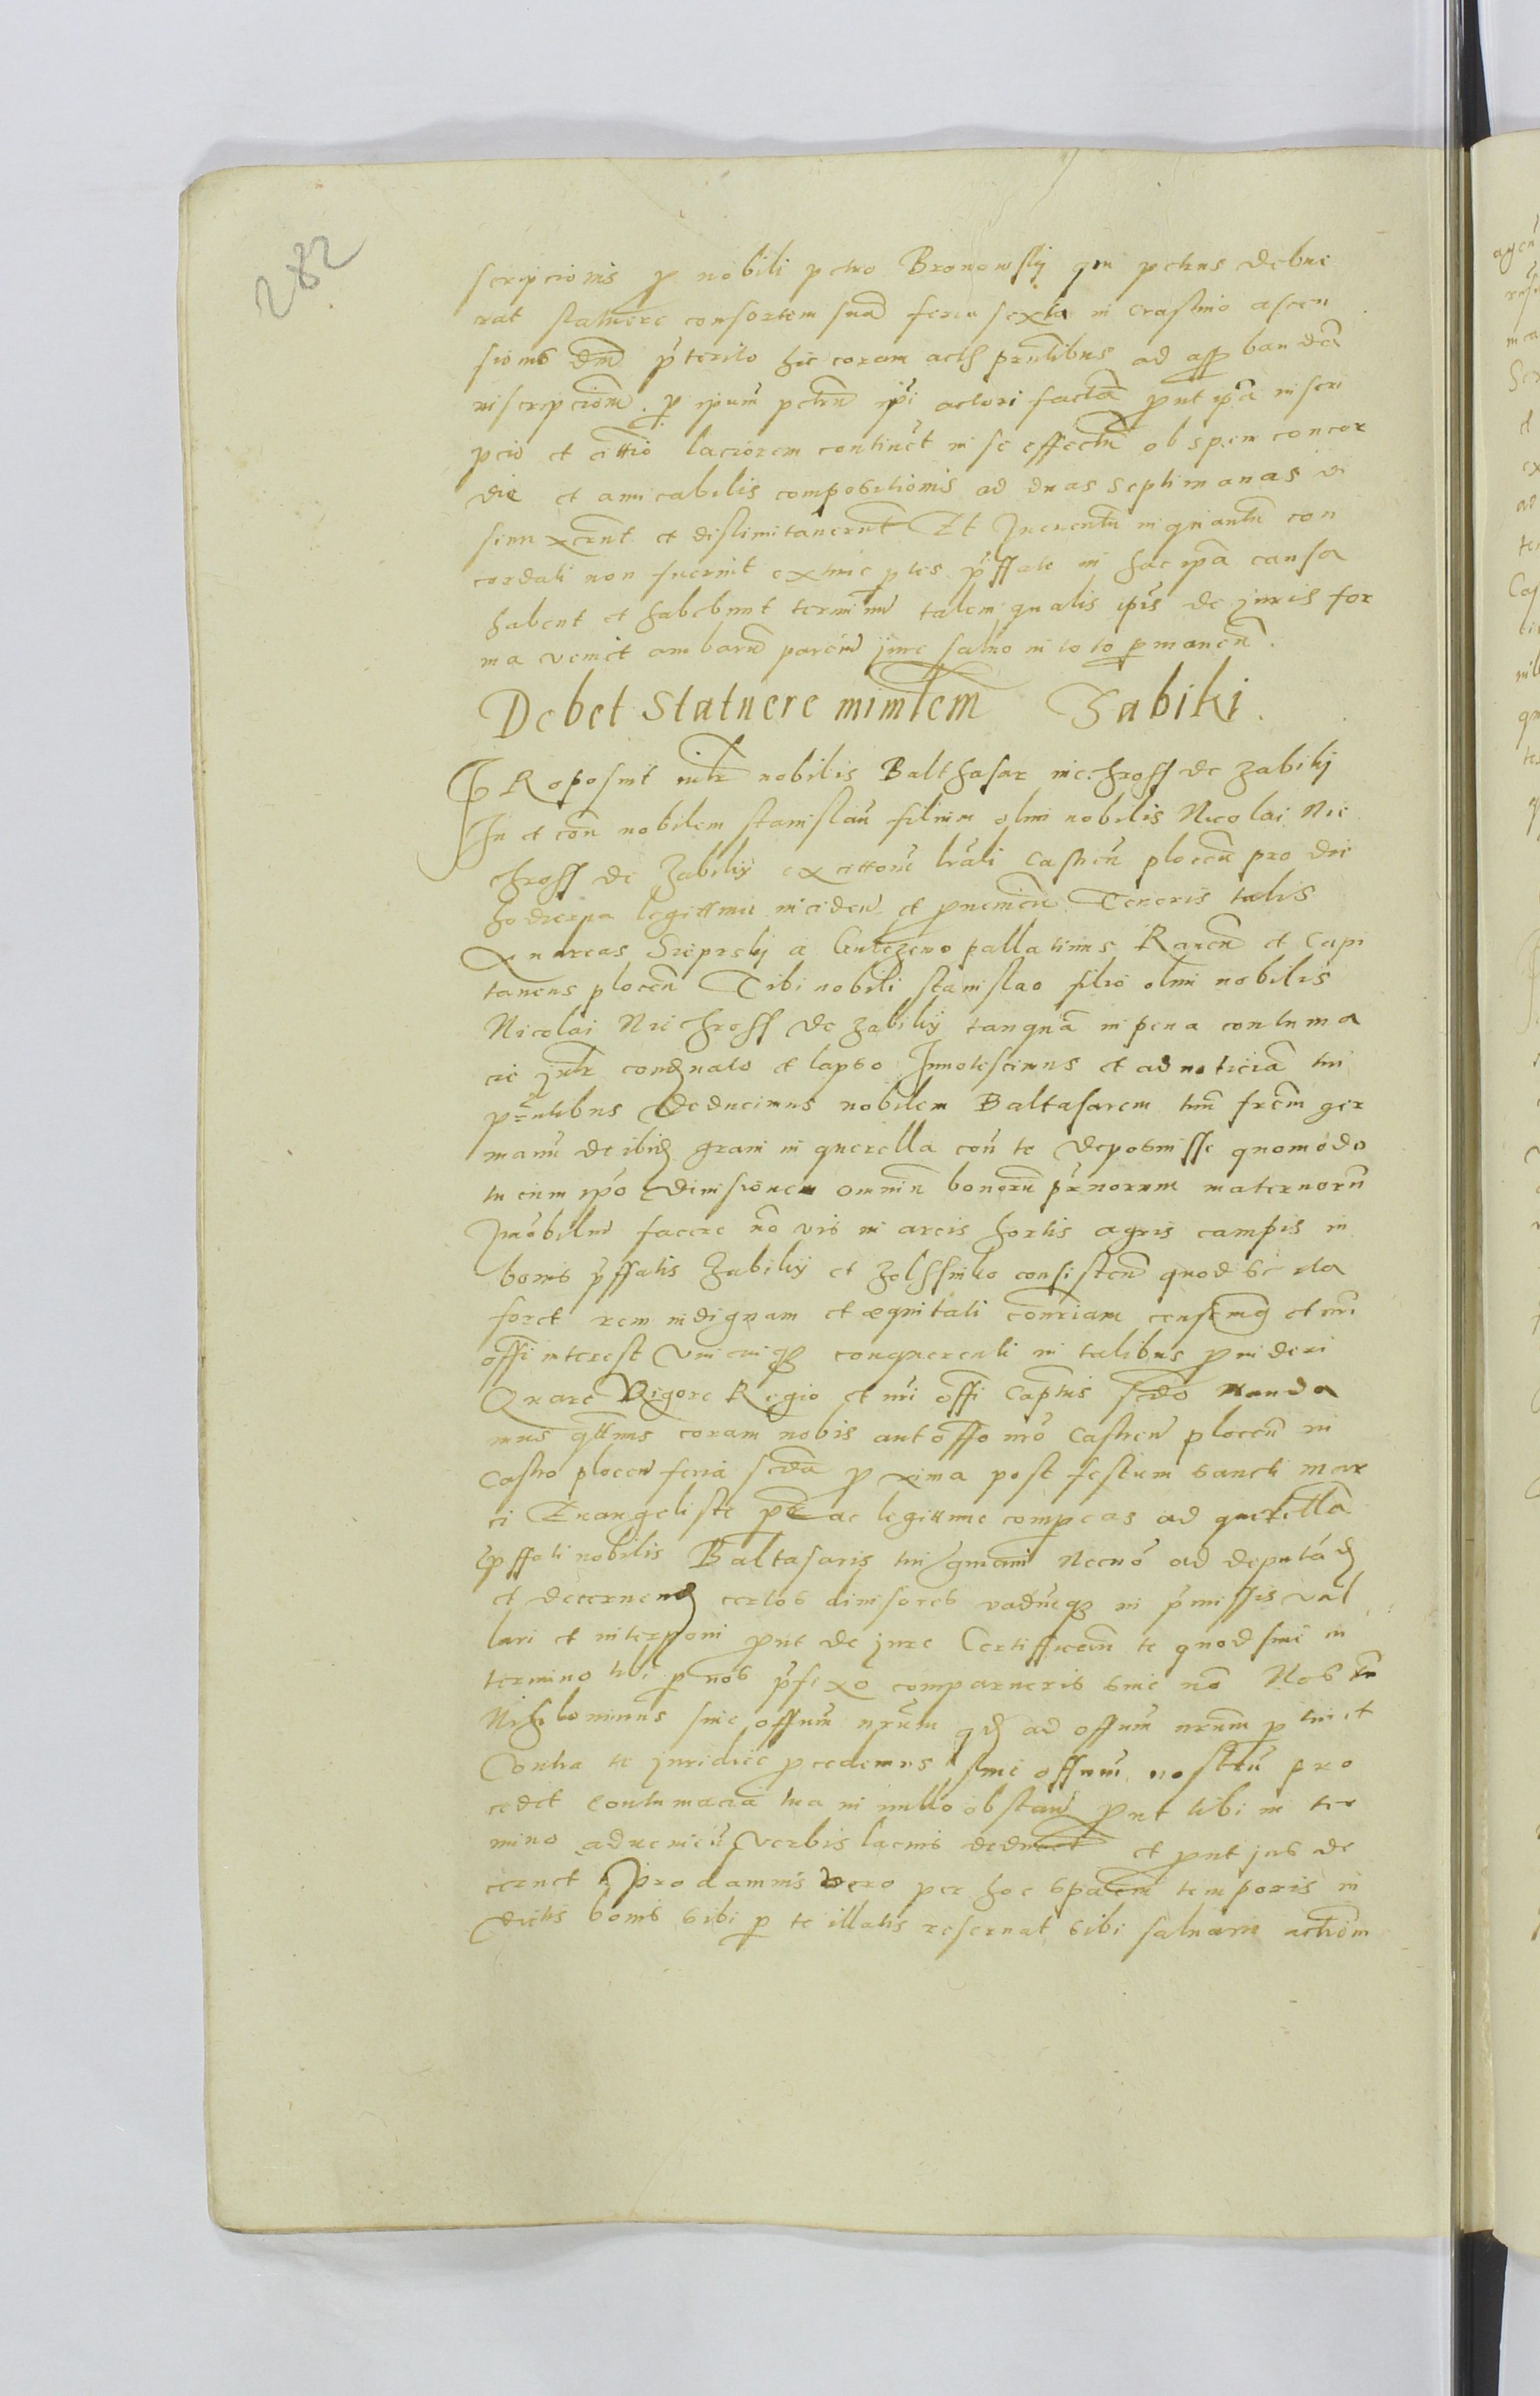 282
scripcionis p nobili petro Bronowskij qui petrus debue
rat statuere consortem suā feria sexta in crastino ascen
sionis dnī pterito hic coram actis pntibus ad approbandā
inscripcionē p ipsum petrū ipi actori factā prout ipā inscri
pcio et cittio laciorem continet in se effectū ob spem concor
die et amicabilis compositionis ad duas septimanas di
xerūt et dislimitauerūt Et Inuentū inquantū con
cordati non fuerint extunc ptes pffate in hac ipa causa
habent et habebunt terminū talem qualis ipis de juris for
ma veniet ambarū parciū jure saluo in toto pmanen̄.
Debet Statuere minōrem Zabiki.
PRoposuit nobilis Balthasar niechross de zabikij
In et con nobilem stanislaū filium olim nobilis Nicolai Nie
chross de zabikij ex cittone lrali Castren̄ plocen̄ pro die
hodierna legittime inciden̄ et pueniēn Tenoris talis
Andreas Sieprskij a Gulczewo pallatinus Rauen̄ et Capi
taneus plocen̄ Tibi nobili stanislao filio olim nobilis
Nicolai Niechross de zabikij tanquā in pena contuma
cie condnato et lapso Innotescimus et ad noticiā tui
pntibus deducimus nobilem Baltasarem tuū frem ger
manū de ibid graui in querella con te deposuisse quomodo
tu cum ipo diuisionem omniū bonorū prnorum maternorū
Imobiliū facere nō vis in areis hortis agris campis in
bonis pffatis zabikij et consisten̄ quod si ita
foret rem indignam et æquitati contriam censemq et nri
offi interest vnicuiqȝ conquerenti in talibus puideri
Quare Vigore Regio et nri offi Captus tibi manda
mus qttnus coram nobis aut offo nro Castren̄ plocen̄ in
Castro plocen̄ feria scda proxima post festum sancti mar
ci Euangeliste pe ac legittime compeas ad querellā
pffati nobilis Baltasaris tui gmani Necnō ad deputād
et decernend certos diuisores vadiūqȝ in pmissis val
lari et interponi prout de jure Certifficam te quod siue in
termino hoc p nos pfixo comparueris siue nō Nos tn
Nihilominus siue offium nrum qd ad offium nrum ptinet
Contra te juridice pcedemus siue offium nostrū pro
cedet contumacia tua in nullo obstan̄ prout tibi in ter
mino adueniēn verbis lacius deducet et prout jus de
cernet Pro damnis vero per hoc spacium temporis in
dictis bonis sibi p te illatis reseruat sibi saluam actionem